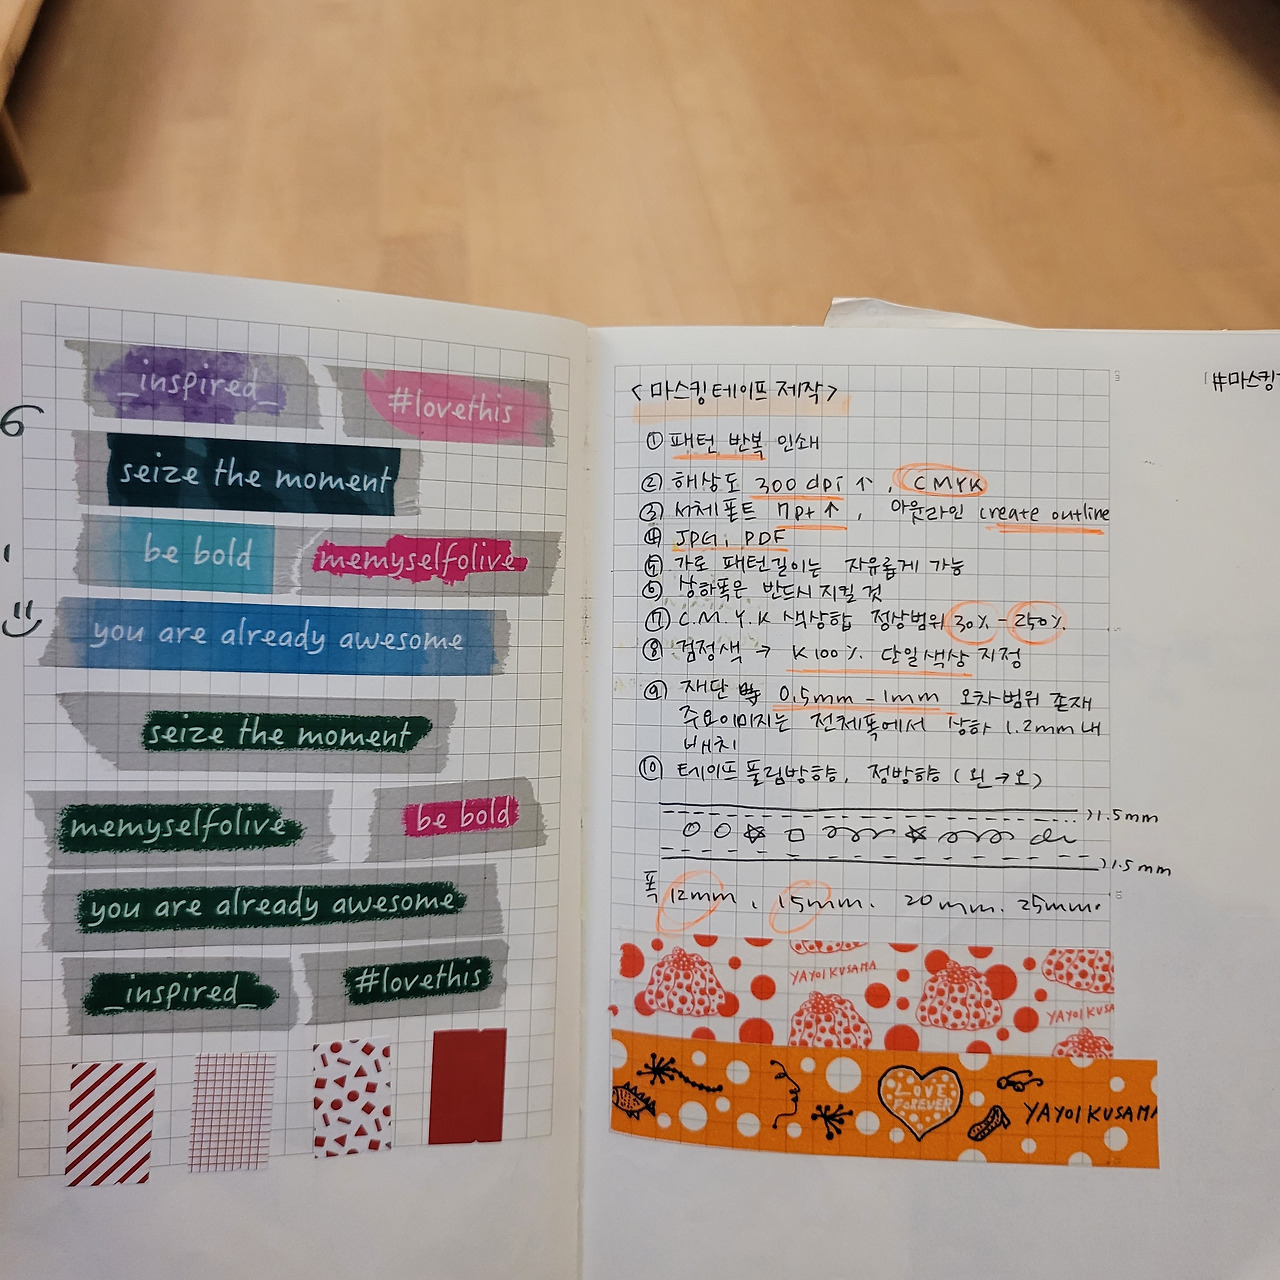 _inspired_
#lovethis
seize the moment
be bold
memyselfolive
you are already awesome
seize the moment
memyselfolive
be bold
you are already awesome
_inspired_
#lovethis
<마스킹테이프 제작>
① 패턴 반복 인쇄
② 해상도 300 dpi ↑, CMYK
③ 서체폰트 7pt ↑, 아웃라인 create outline
④ JPG, PDF
⑤ 가로 패턴길이는 자유롭게 가능
⑥ 상하폭은 반드시 지킬 것
⑦ C.M.Y.K 색상합 정상범위 30% - 250%.
⑧ 검정색 → K100% 단일색상 지정
⑨ 재단 시 0.5mm - 1mm 오차범위 존재
주요이미지는 전체폭에서 상하 1.2mm 내
배치
⑩ 테이프 풀림방향, 정방향 (왼→오)
1.5mm
1.5mm
폭 12mm, 15mm. 20mm. 25mm.
YAYOI KUSAMA
YAYOI KUSA
LOVE
FOREVER
YAYOI KUSAMA
#마스킹